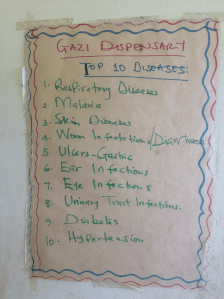 GAZI DISPENSARY
TOP 10 DISEASES.
1. Respiratory Diseases
2. Malaria
3. Skin Diseases
4. Worm Infestation/Diarrhoea
5. Ulcers-Gastric
6 Ear Infections
7. Eye Infections
8. Urinary Tract Infections.
9. Diabetes
10. Hypertension